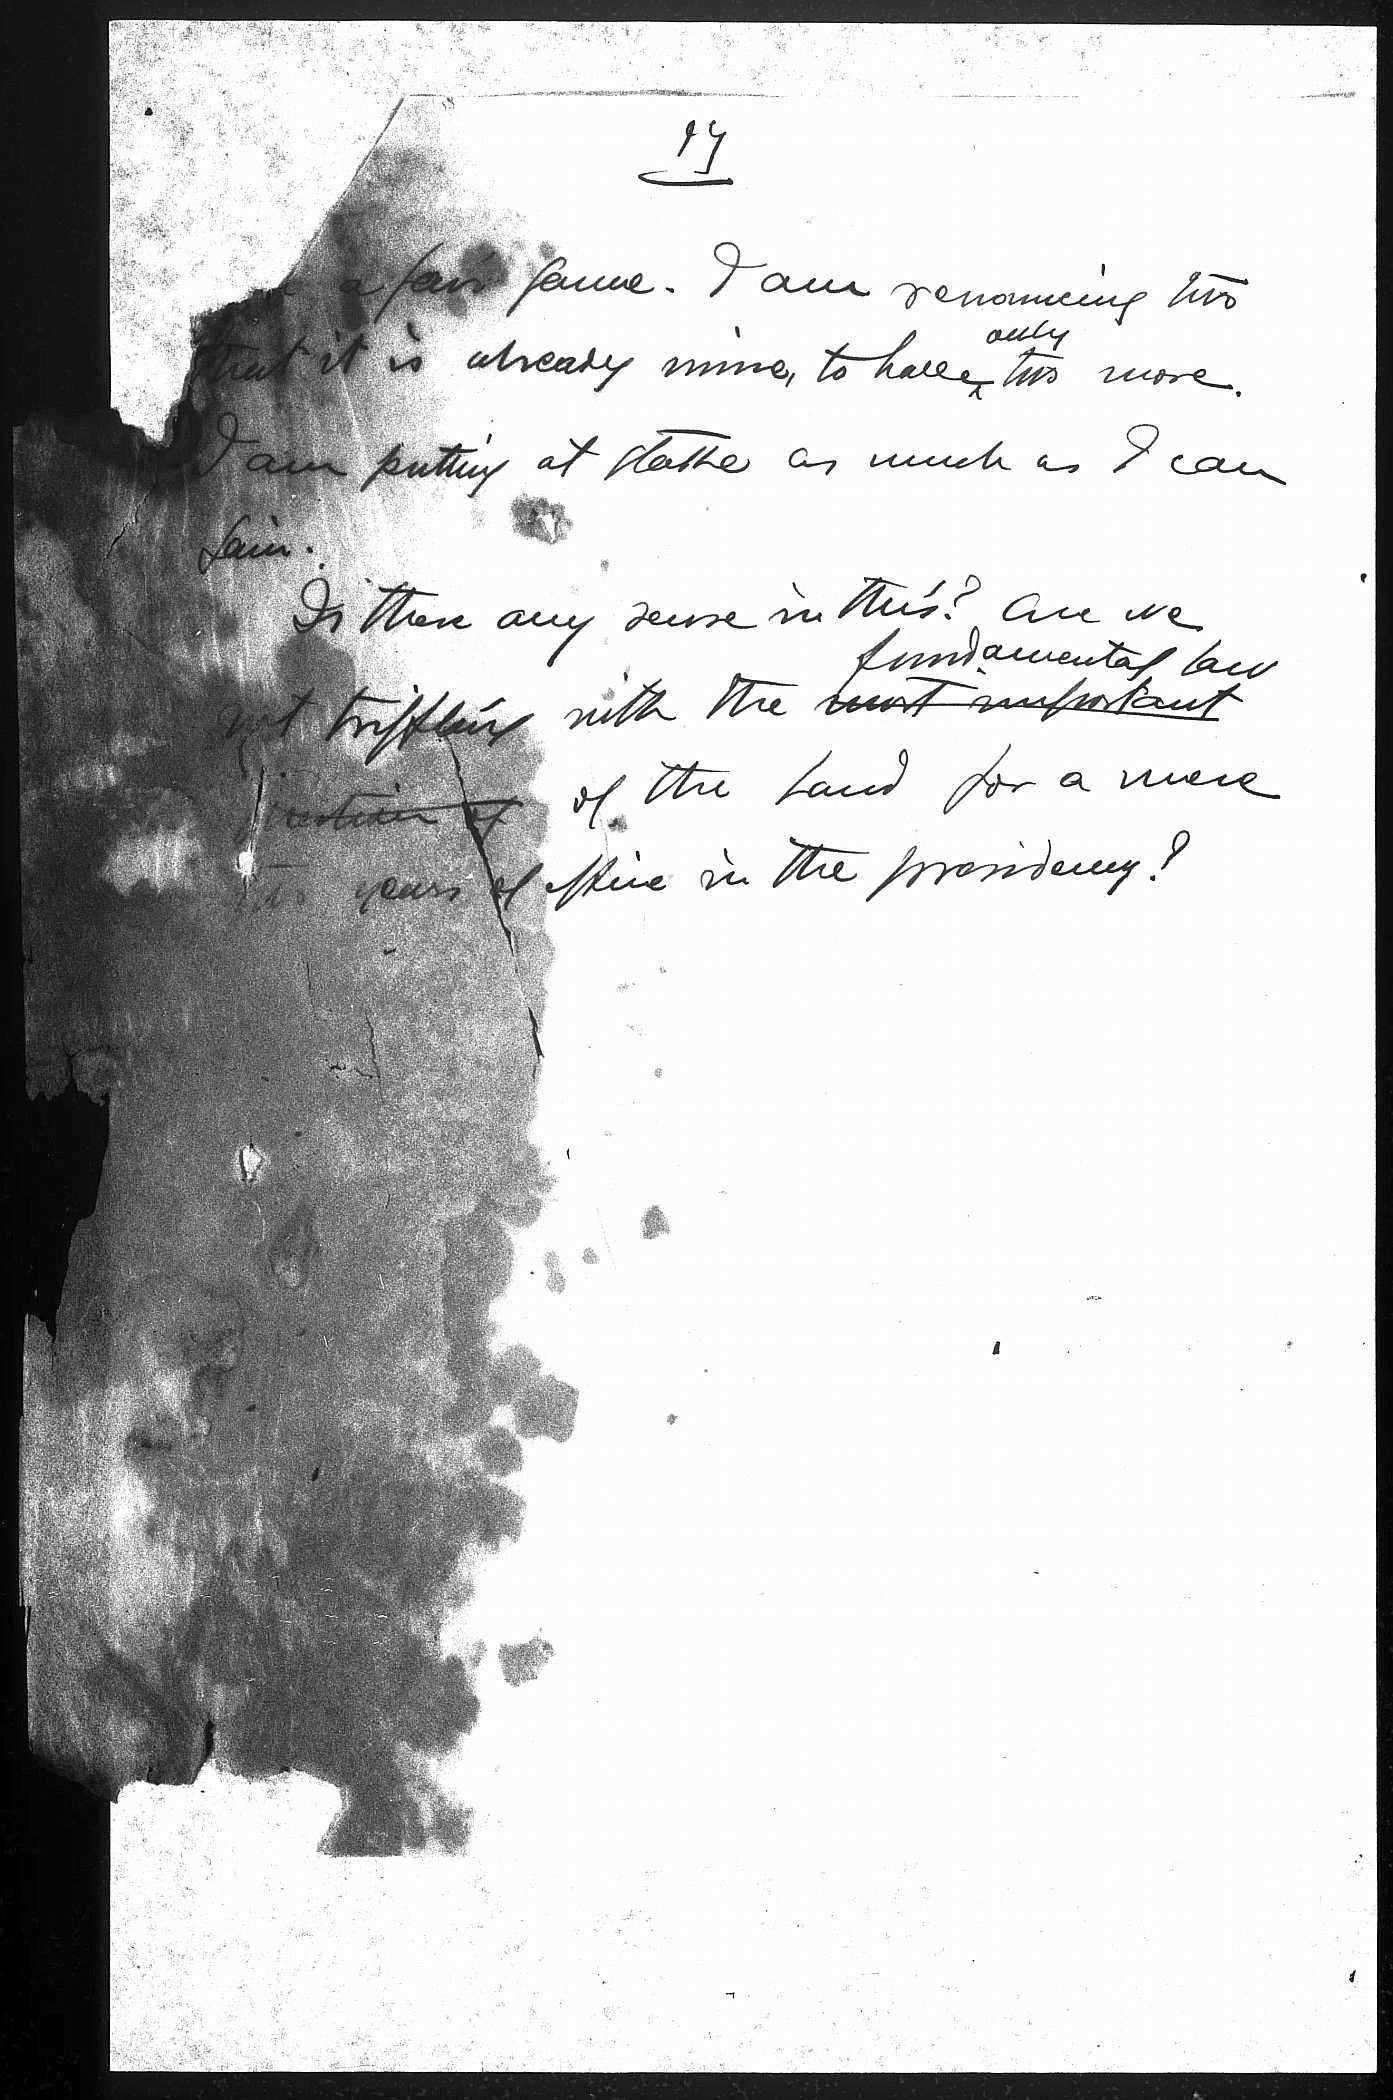 17
a fair game. I am renouncing two
that it is already mine, to have only two more.
I am putting at stake as much as I can
gain.
Is there any sense in this? Are we
fundamental law
not triffling with the most important
question of of the land for a mere
two years of office in the presidency?